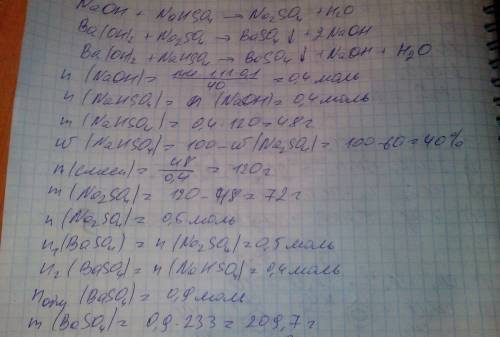 NaOH + NaHSO₄ → Na₂SO₄ + H₂O
Ba(OH)₂ + Na₂SO₄ → BaSO₄↓ + 2NaOH
Ba(OH)₂ + NaHSO₄ → BaSO₄↓ + NaOH + H₂O
n (NaOH) = 111·0,1 / 40 = 0,4 моль
n (NaHSO₄) = n (NaOH) = 0,4 моль
m (NaHSO₄) = 0,4·120 = 48 г
w (NaHSO₄) = 100 - w (Na₂SO₄) = 100 - 60 = 40%
m (смеси) = 48 / 0,4 = 120 г
m (Na₂SO₄) = 120 - 48 = 72 г
n (Na₂SO₄) = 0,5 моль
n₁ (BaSO₄) = n (Na₂SO₄) = 0,5 моль
n₂ (BaSO₄) = n (NaHSO₄) = 0,4 моль
nобщ (BaSO₄) = 0,9 моль
m (BaSO₄) = 0,9·233 = 209,7 г